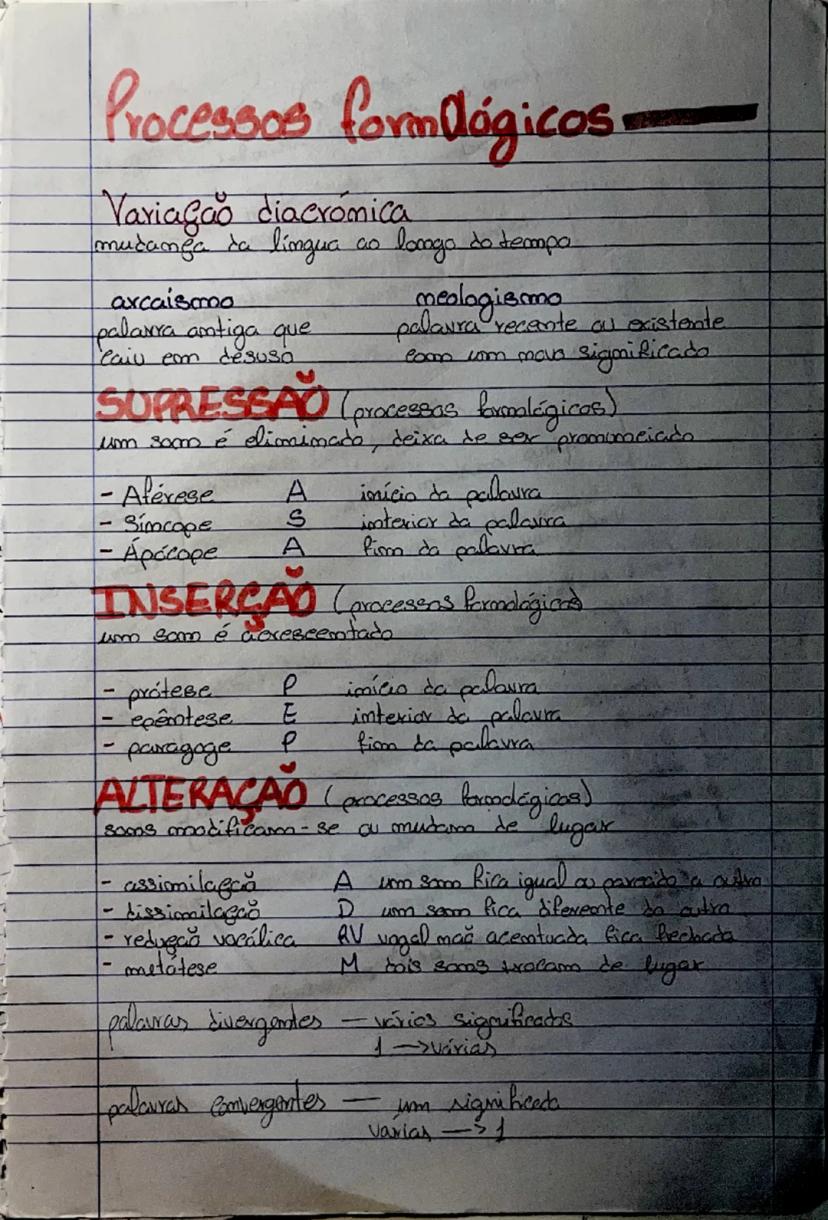 Processos fonológicos
Variação diacrónica
mudança da língua ao longo do tempo
arcaísmo neologismo
palavra antiga que palavra recente ou existente
caiu em desuso com um novo significado
SUPRESSÃO (processos fonológicos)
um som é eliminado, deixa de ser pronunciado
- Aférese A início da palavra
- Síncope S interior da palavra
- Apócope A fim da palavra
INSERÇÃO (processos fonológicos)
um som é acrescentado
- prótese P início da palavra
- epêntese E interior da palavra
- paragoge P fim da palavra
ALTERAÇÃO (processos fonológicos)
sons modificam-se ou mudam de lugar
- assimilação A um som fica igual ou parecido a outro
- dissimilação D um som fica diferente do outro
- redução vocálica RV vogal não acentuada fica fechada
- metátese M dois sons trocam de lugar
palavras divergentes — vários significados
1 → várias
palavras convergentes — um significado
várias → 1